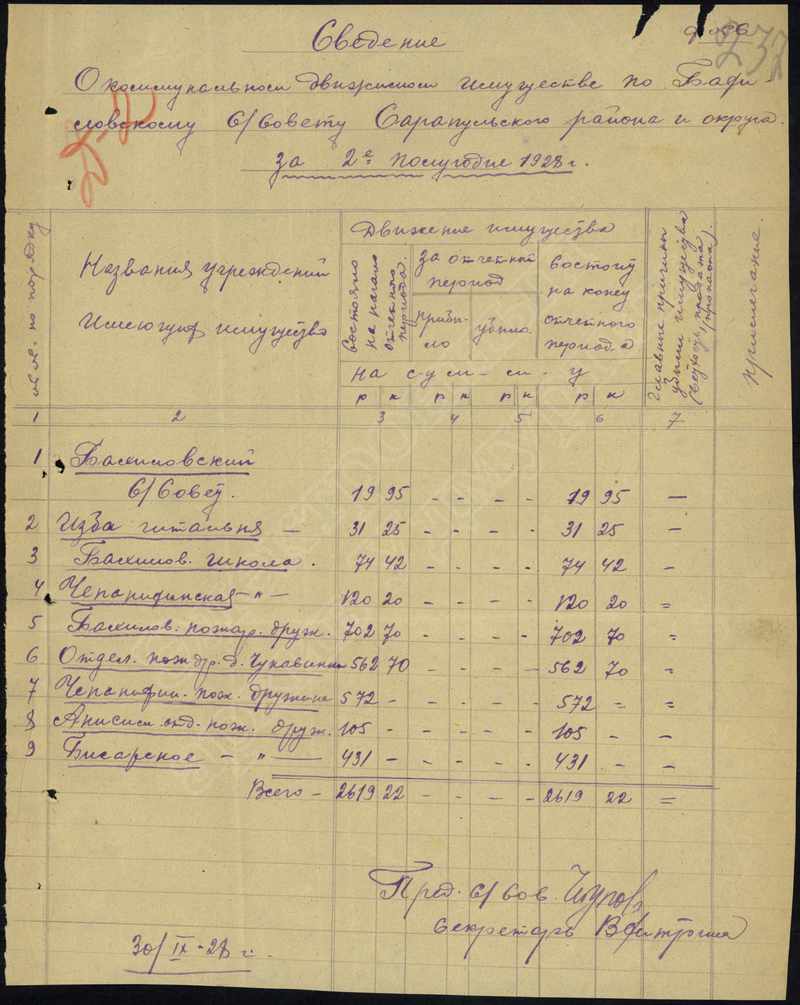 Сведение
232
О коммунальном движимом имуществе по Бахи-
ловскому с/совету Сарапульского района и округа.
за 2е полугодие 1928 г.
№№ по порядку
Названия учреждений
Имеющих имущество
Движение имущества
состояло на начало отчетного периода.
за отчетный период
прибыло
убыло
состоит на конец отчетного периода
На сум-м-у
р к р к р к р к
Главные причины убыли имущества
Примечание.
1 2 3 4 5 6 7
1 Бахиловский
с/совет. 19 95 - - - - 19 95 —
2 Изба читальня — 31 25 - - - - 31 25 —
3 Бахилов. школа. 74 42 - - - - 74 42 -
4 Чепанихинская -"- 120 20 - - - - 120 20 =
5 Бахилов. пожар. друж. 702 70 - - - - 702 70 =
6 Отдел. пож др. д. 562 70 - - - - 562 70 "
7 Чепанихин. пож. дружина 572 - - - - - 572 = =
8 Анисим. отд. пож. друж. 105 - - - - - 105 - -
9 Бисарское — " — 431 - - - - - 431 - -
Всего - 2619 22 - - - - 2619 22 =
Пред. с/сов.
Секретарь
30/IX-28 г.